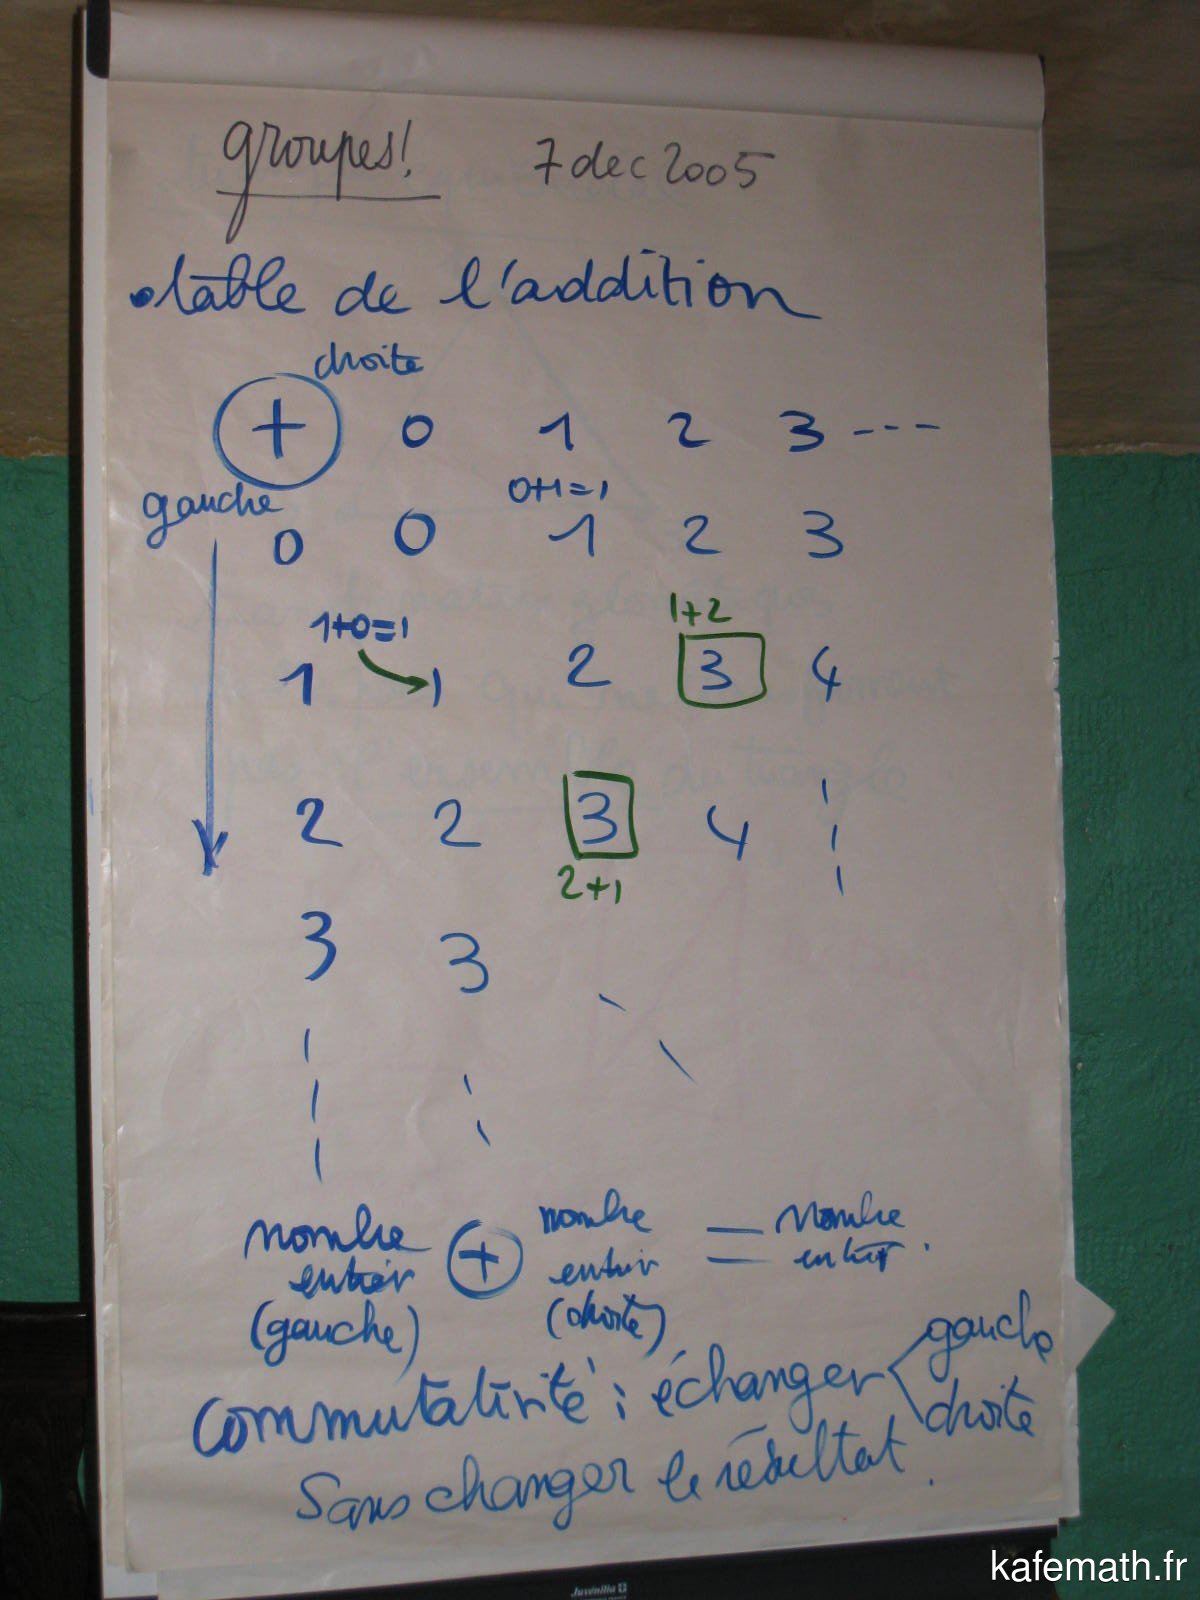 groupes! 7 dec 2005
• table de l'addition
droite
+ 0 1 2 3 ---
gauche 0+1=1
0 0 1 2 3
1+0=1 1+2
1 1 2 3 4
2 2 3 4
2+1
3 3
nombre + nombre = nombre
entier entier entier.
(gauche) (droite)
commutativité : échanger gauche
droite
sans changer le résultat.
Juvénilia
kafemath.fr